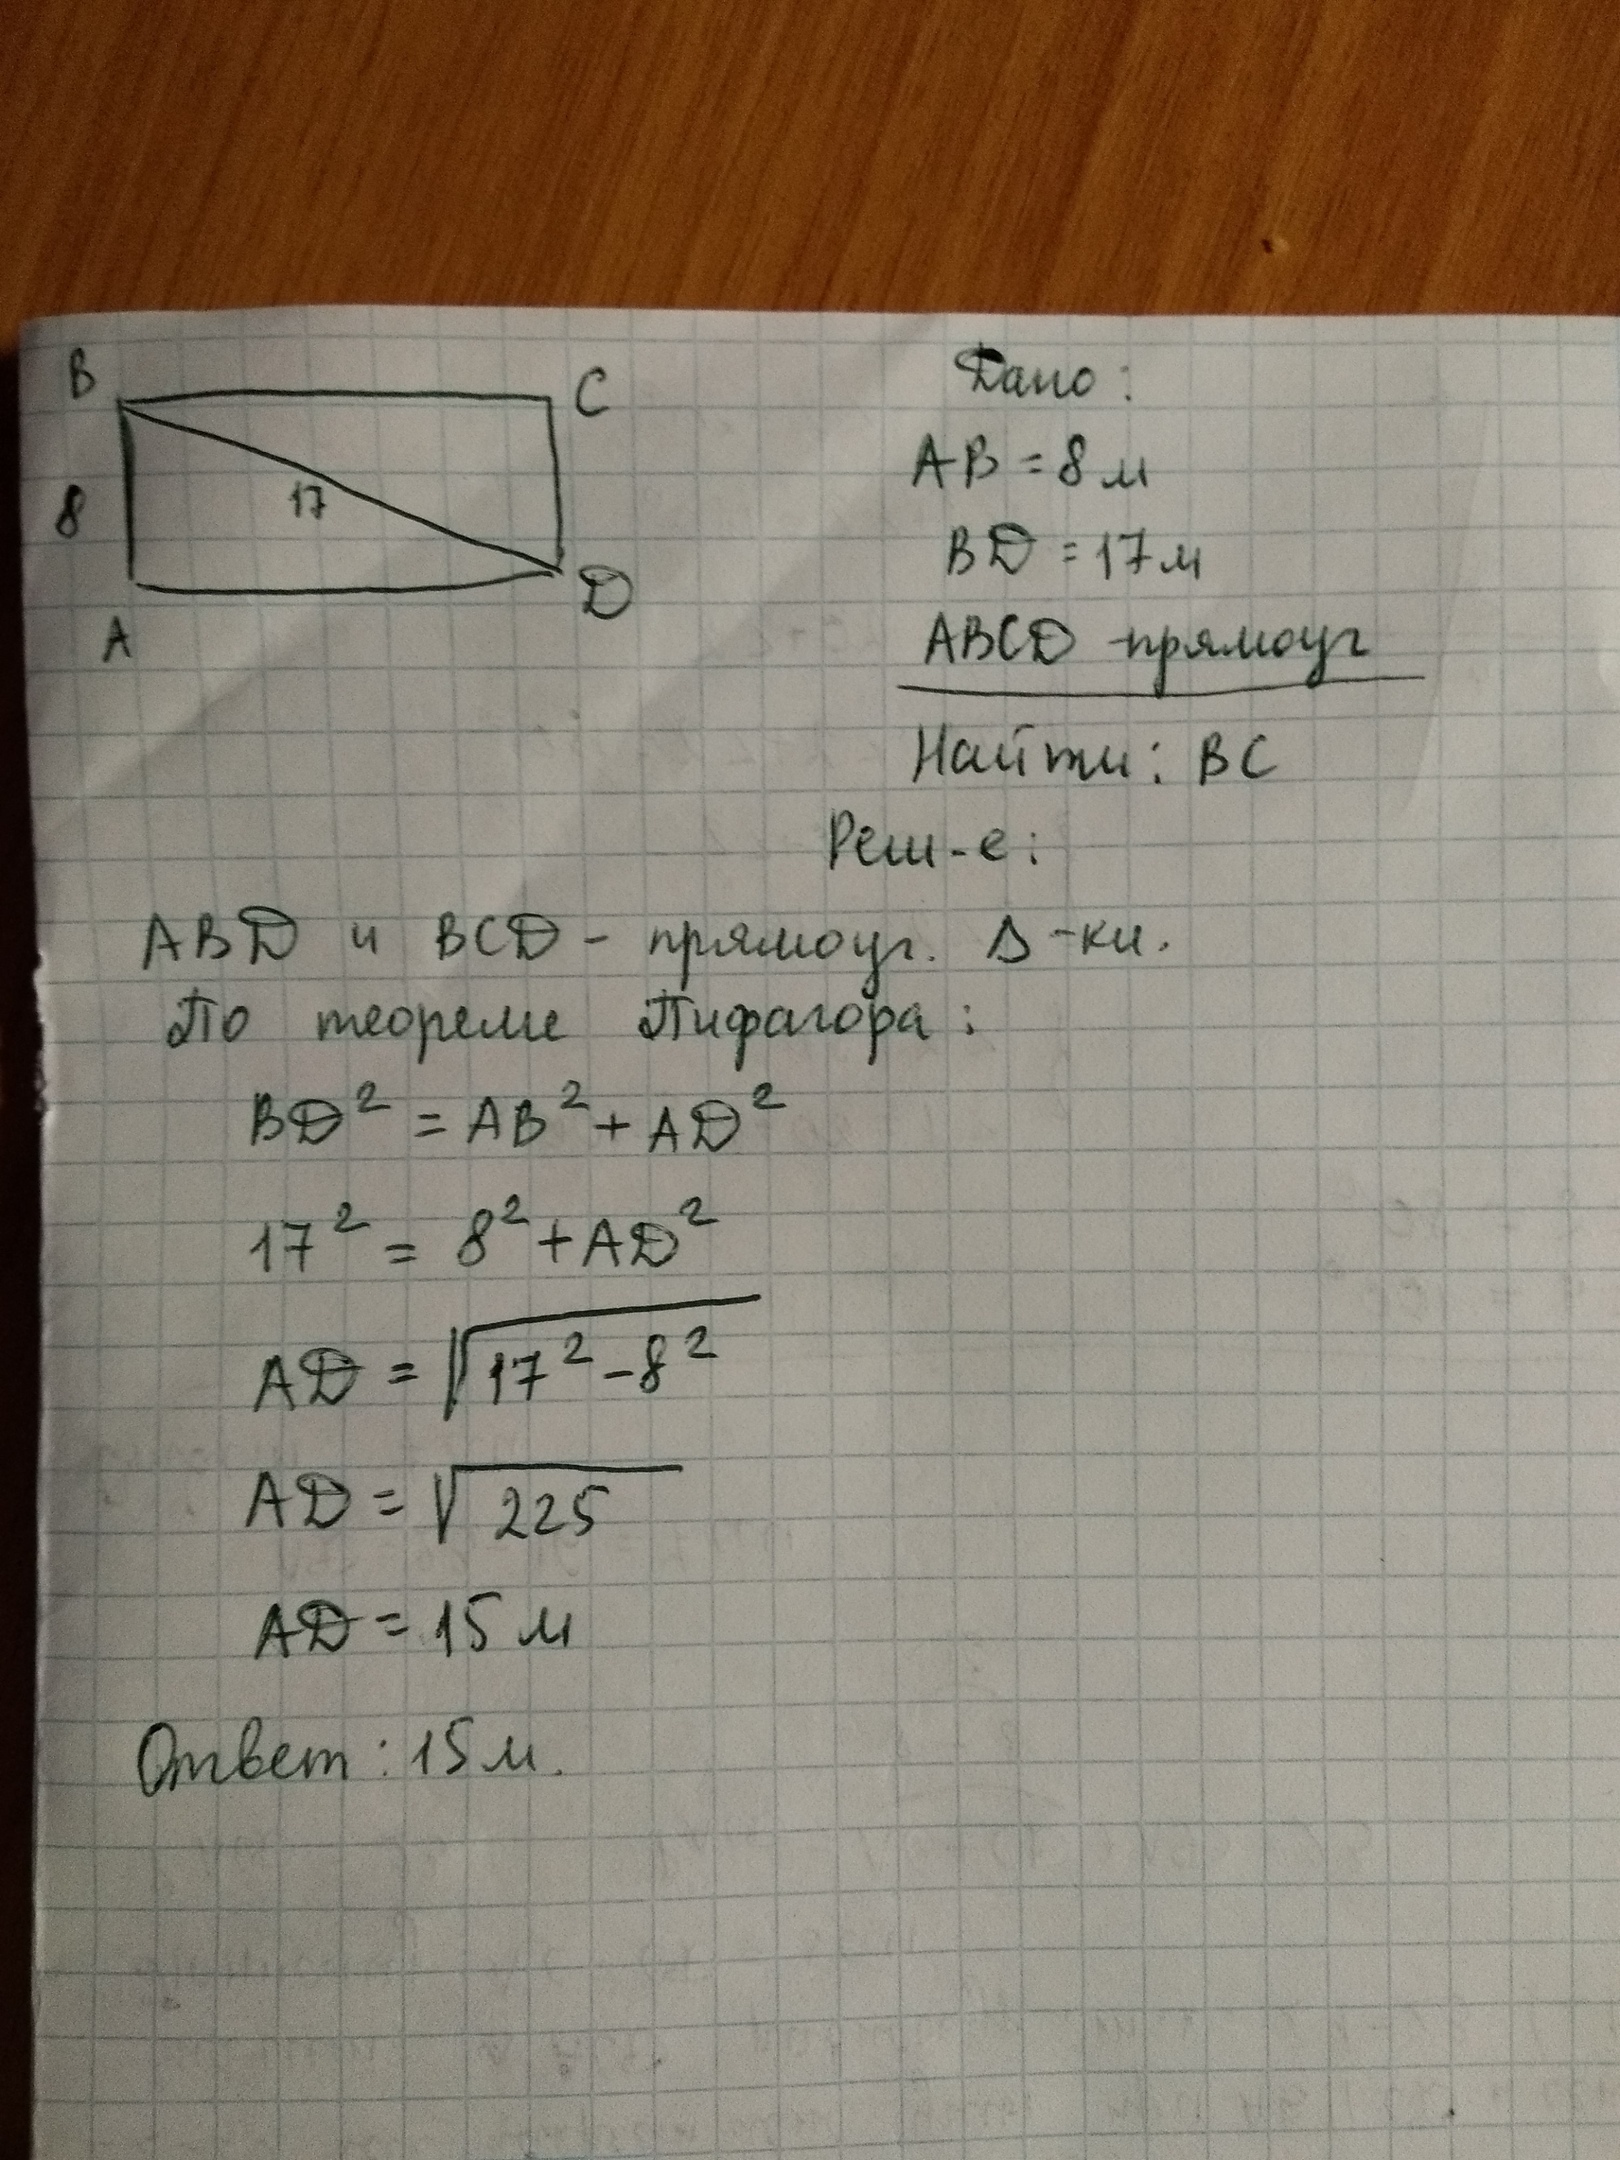 B
C
8
17
A
D
Дано:
AB = 8 м
BD = 17 м
ABCD - прямоуг
Найти: BC
Реш-е:
ABD и BCD - прямоуг. Δ-ки.
По теореме Пифагора:
BD² = AB² + AD²
17² = 8² + AD²
AD = √17² - 8²
AD = √225
AD = 15 м
Ответ: 15 м.